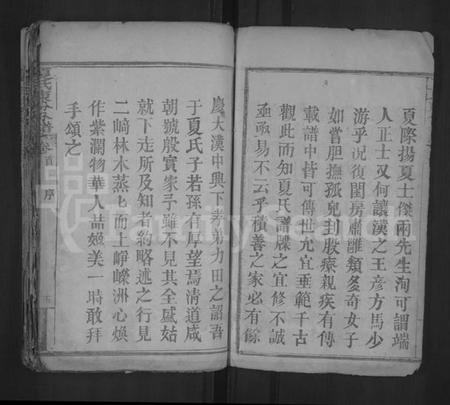 夏際揚夏士傑兩先生洵可謂端
人正士又何讓漢之王彥方馬少
游乎況復閨房肅雝類多奇女子
如嘗胆撫孤兒刲股療親疾有傳
載譜中皆可傳世尤宜垂範千古
觀此而知夏氏譜牒之宜修不誠
亟亟易不云乎積善之家必有餘
慶大漢中興下孝弟力田之詔吾
于夏氏子若孫有厚望焉清道咸
朝號殷實家予雖不見其全感姑
就下走所及知者約略述之行見
二崎林木蒸七而上崢嶸洲心煥
作紫瀾物華人喆姬美一時敢拜
手頌之
序